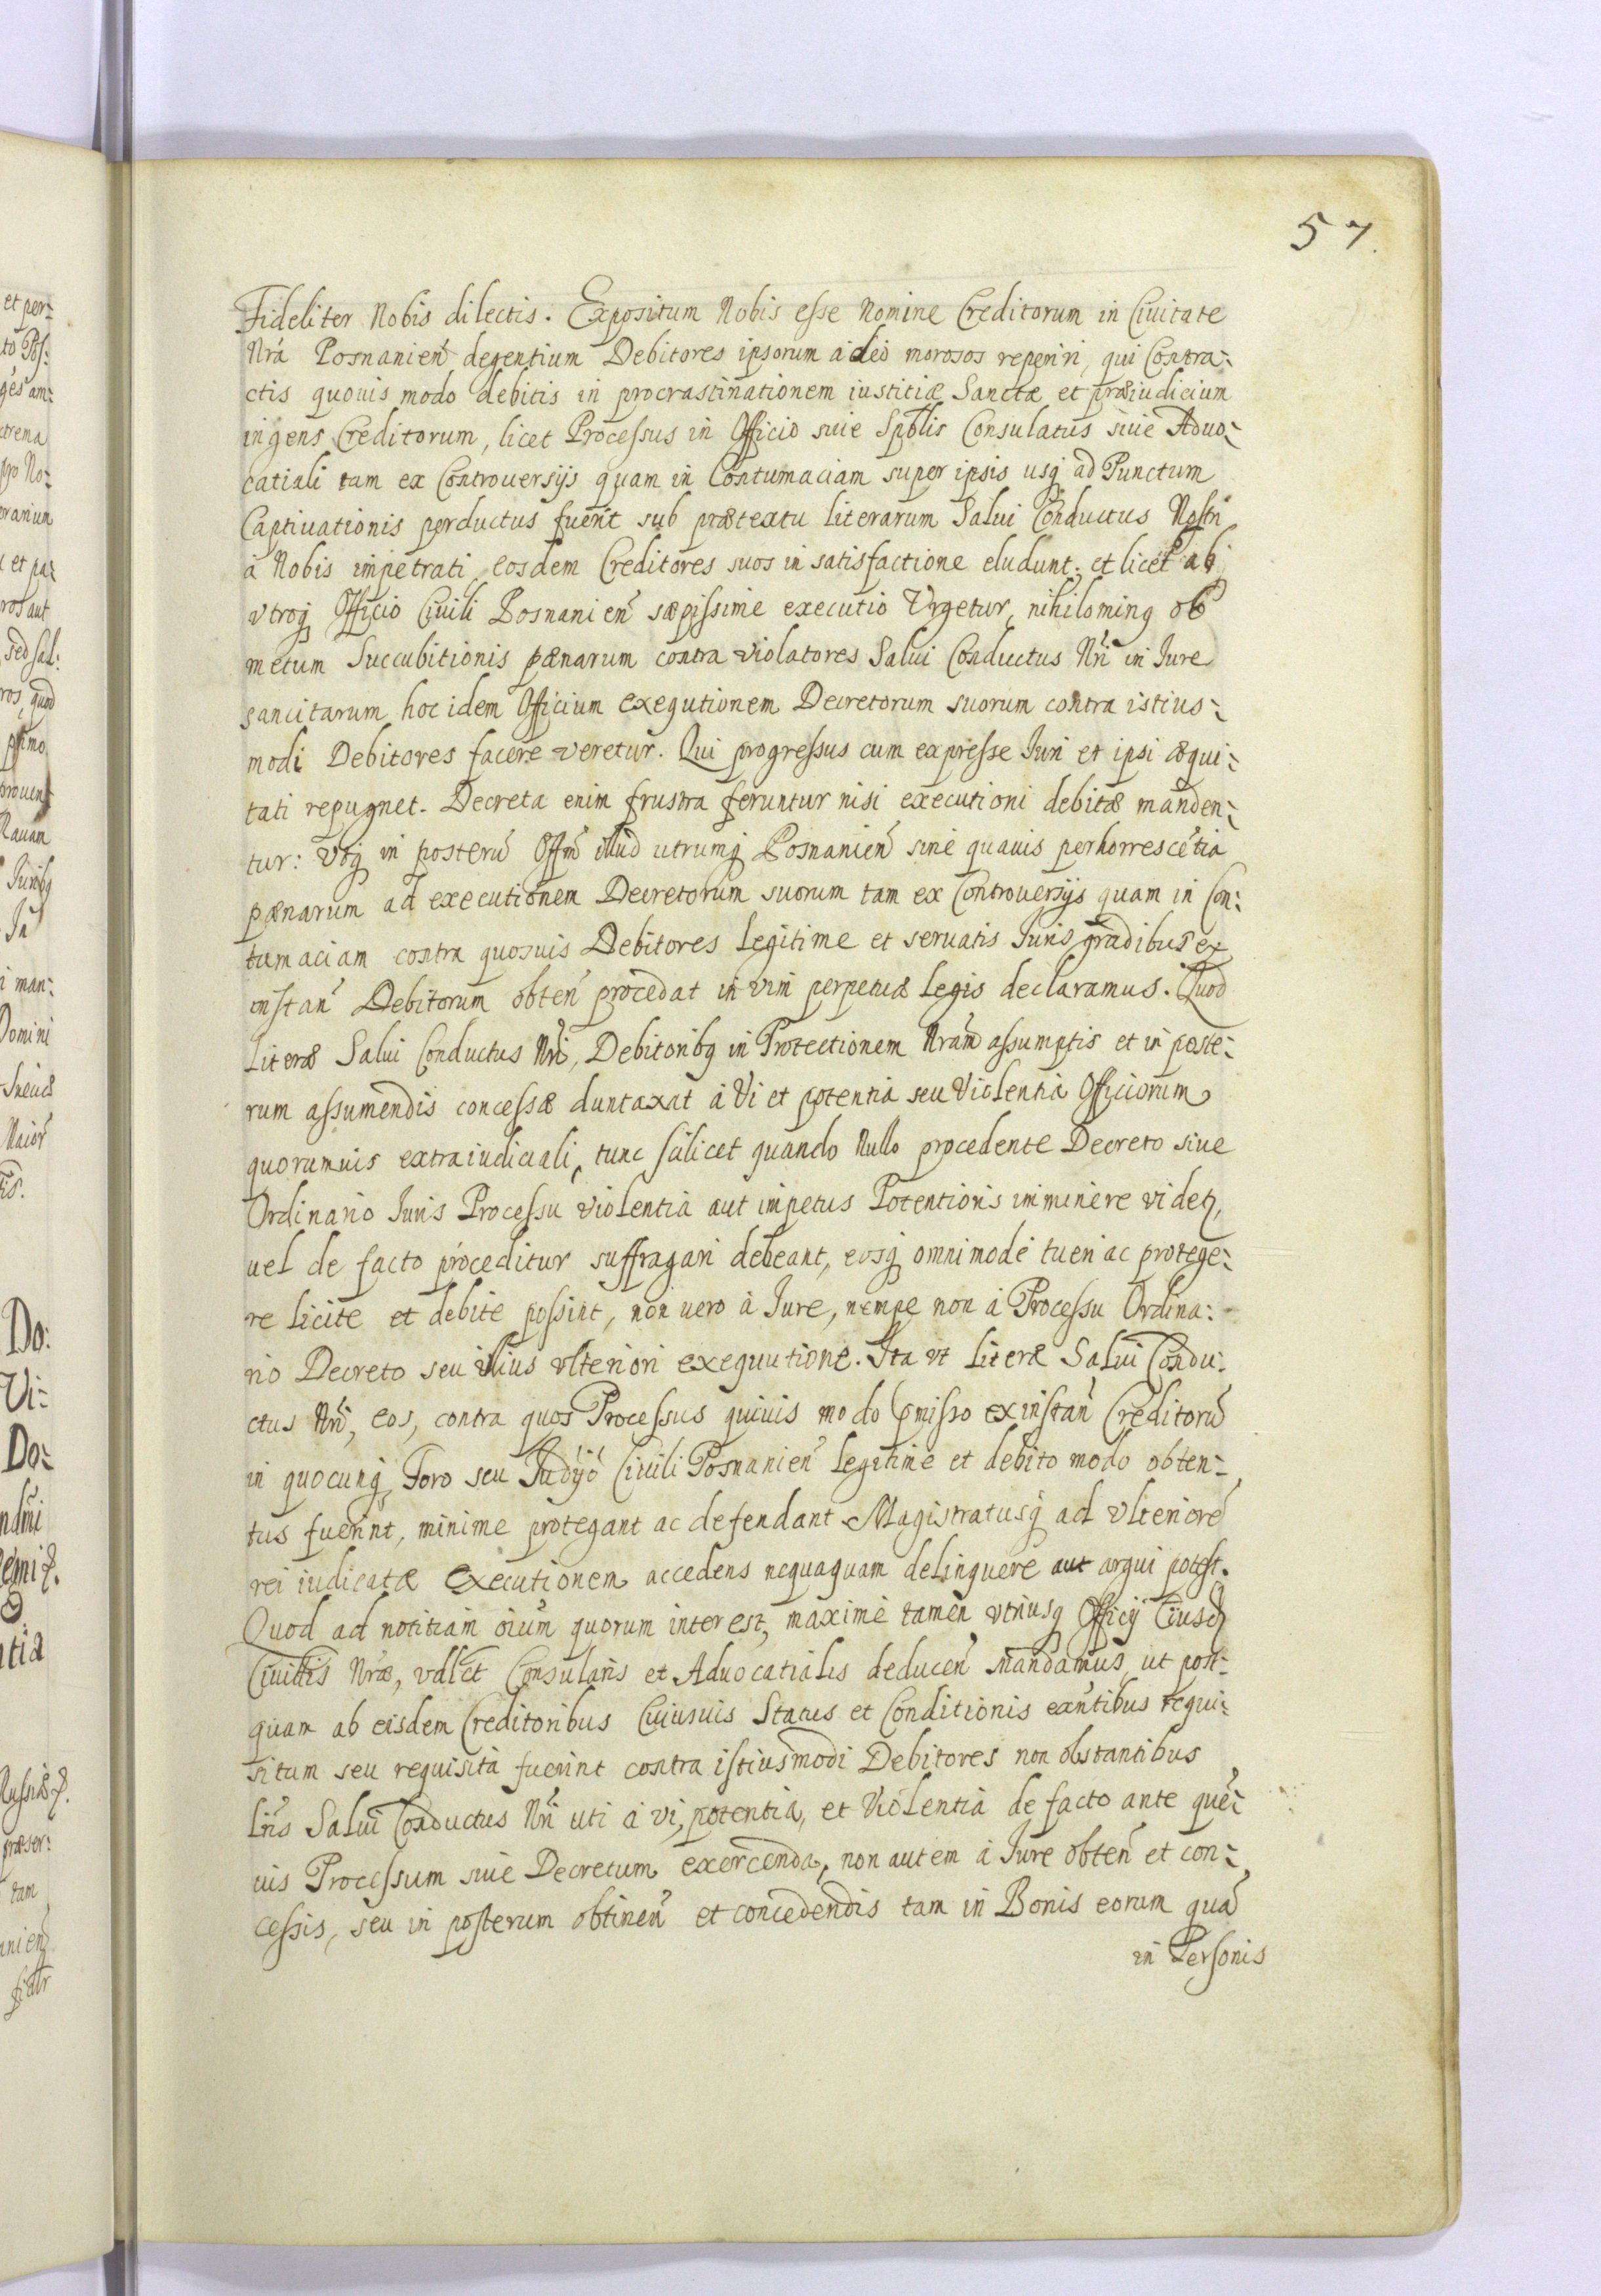 57.
Fideliter Nobis dilectis. Expositum Nobis esse Nomine Creditorum in Ciuitate
Nrã Posnanien̄ degentium Debitores ipsorum adeò morosos reperiri, qui Contra:
ctis quouis modo debitis in procrastinationem iustitiæ Sanctæ et præiudicium
ingens Creditorum, licet Processus in Officio siue Spblis Consulatus siue Aduo:
catiali tam ex Controuersijs quam in Contumaciam super ipsis usq ad Punctum
Captiuationis perductus fuerit sub prætextu Literarum Salui Conductus Nostri
à Nobis impetrati eosdem Creditores suos in satisfactione eludunt; et licet ab
vtroq Officio Ciuili Posnanien̄ sæpissime executio Vrgetur, nihilominq ob
metum Succubitionis pænarum contra violatores Salui Conductus Nr̄i in Iure
sancitarum hoc idem Officium exequtionem Decretorum suorum contra istius:
modi Debitores facere veretur. Qui progressus cum expresse Iuri et ipsi æqui:
tati repugnet. Decreta enim frustra feruntur nisi executioni debitæ manden:
tur: Vtq in posterū Offm̄ illud utrumq Posnanien̄ sine quauis perhorrescētia
pænarum ad executionem Decretorum suorum tam ex Controuersijs quam in Con:
tumaciam contra quosuis Debitores legitime et seruatis Iuris gradibus ex
instan̄ Debitorum obten̄ procedat in vim perpetuæ Legis declaramus. Quod
Literæ Salui Conductus Nr̄i, Debitoribq in Protectionem Nram̄ assumptis et in poste:
rum assumendis concessæ duntaxat à Vi et potentia seu Violentia Officiorum
quorumuis extraiudiciali, tunc scilicet quando Nullo procedente Decreto siue
Ordinario Iuris Processu violentia aut impetus Potentioris imminere videtꝫ,
uel de facto proceditur suffragari debeant, eosq omnimodè tueri ac protege:
re licite et debite possint, non uero à Iure, nempe non à Processu Ordina:
rio Decreto seu illius vlteriori exequutione. Ita vt Literæ Salui Condu:
ctus Nr̄i, eos, contra quos Processus quiuis modo p̄misso ex instan̄ Creditorū
in quocunq Foro seu Iudijō Ciuili Posnanien̄ legitime et debito modo obten:
tus fuerint, minime protegant ac defendant Magistratusq ad vlteriorē
rei iudicatæ executionem accedens nequaquam delinquere aut argui potest.
Quod ad notitiam oiūm quorum interest, maximè tamen vtriusq Officij Eiusdꝫ
Ciuittis Nræ, vdlct Consularis et Aduocatialis deducen̄ mandamus, ut post:
quam ab eisdem Creditoribus Cuiusuis Status et Conditionis exn̄tibus requi:
situm seu requisita fuerint contra istiusmodi Debitores non obstantibus
Lr̄is Salui Conductus Nr̄i uti à vi, potentia, et Violentia de facto ante quē:
uis Processum siue Decretum exercenda, non autem à Iure obten̄ et con:
cessis, seu in posterum obtinen̄ et concedendis tam in Bonis eorum quā
in Personis